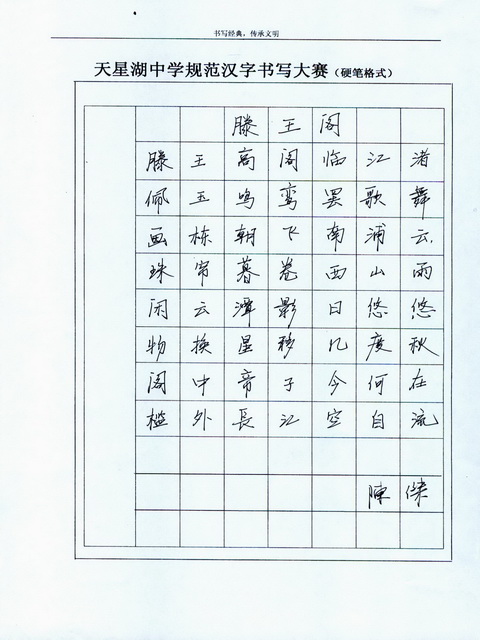 书写经典，传承文明
天星湖中学规范汉字书写大赛（硬笔格式）
滕王阁
滕王高阁临江渚
佩玉鸣鸾罢歌舞
画栋朝飞南浦云
珠帘暮卷西山雨
闲云潭影日悠悠
物换星移几度秋
阁中帝子今何在
槛外長江空自流
陳